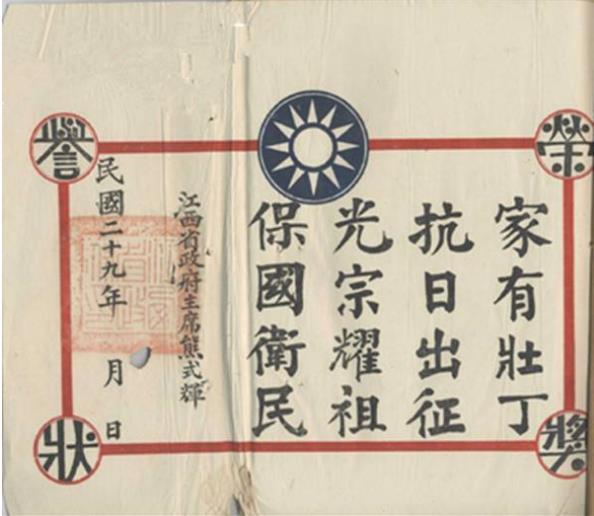 榮譽獎狀
家有壯丁
抗日出征
光宗耀祖
保國衛民
江西省政府主席熊式輝
民國二十九年 月 日